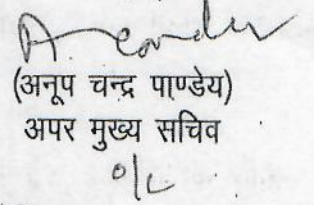 (अनूप चन्द्र पाण्डेय)
अपर मुख्य सचिव
o/c